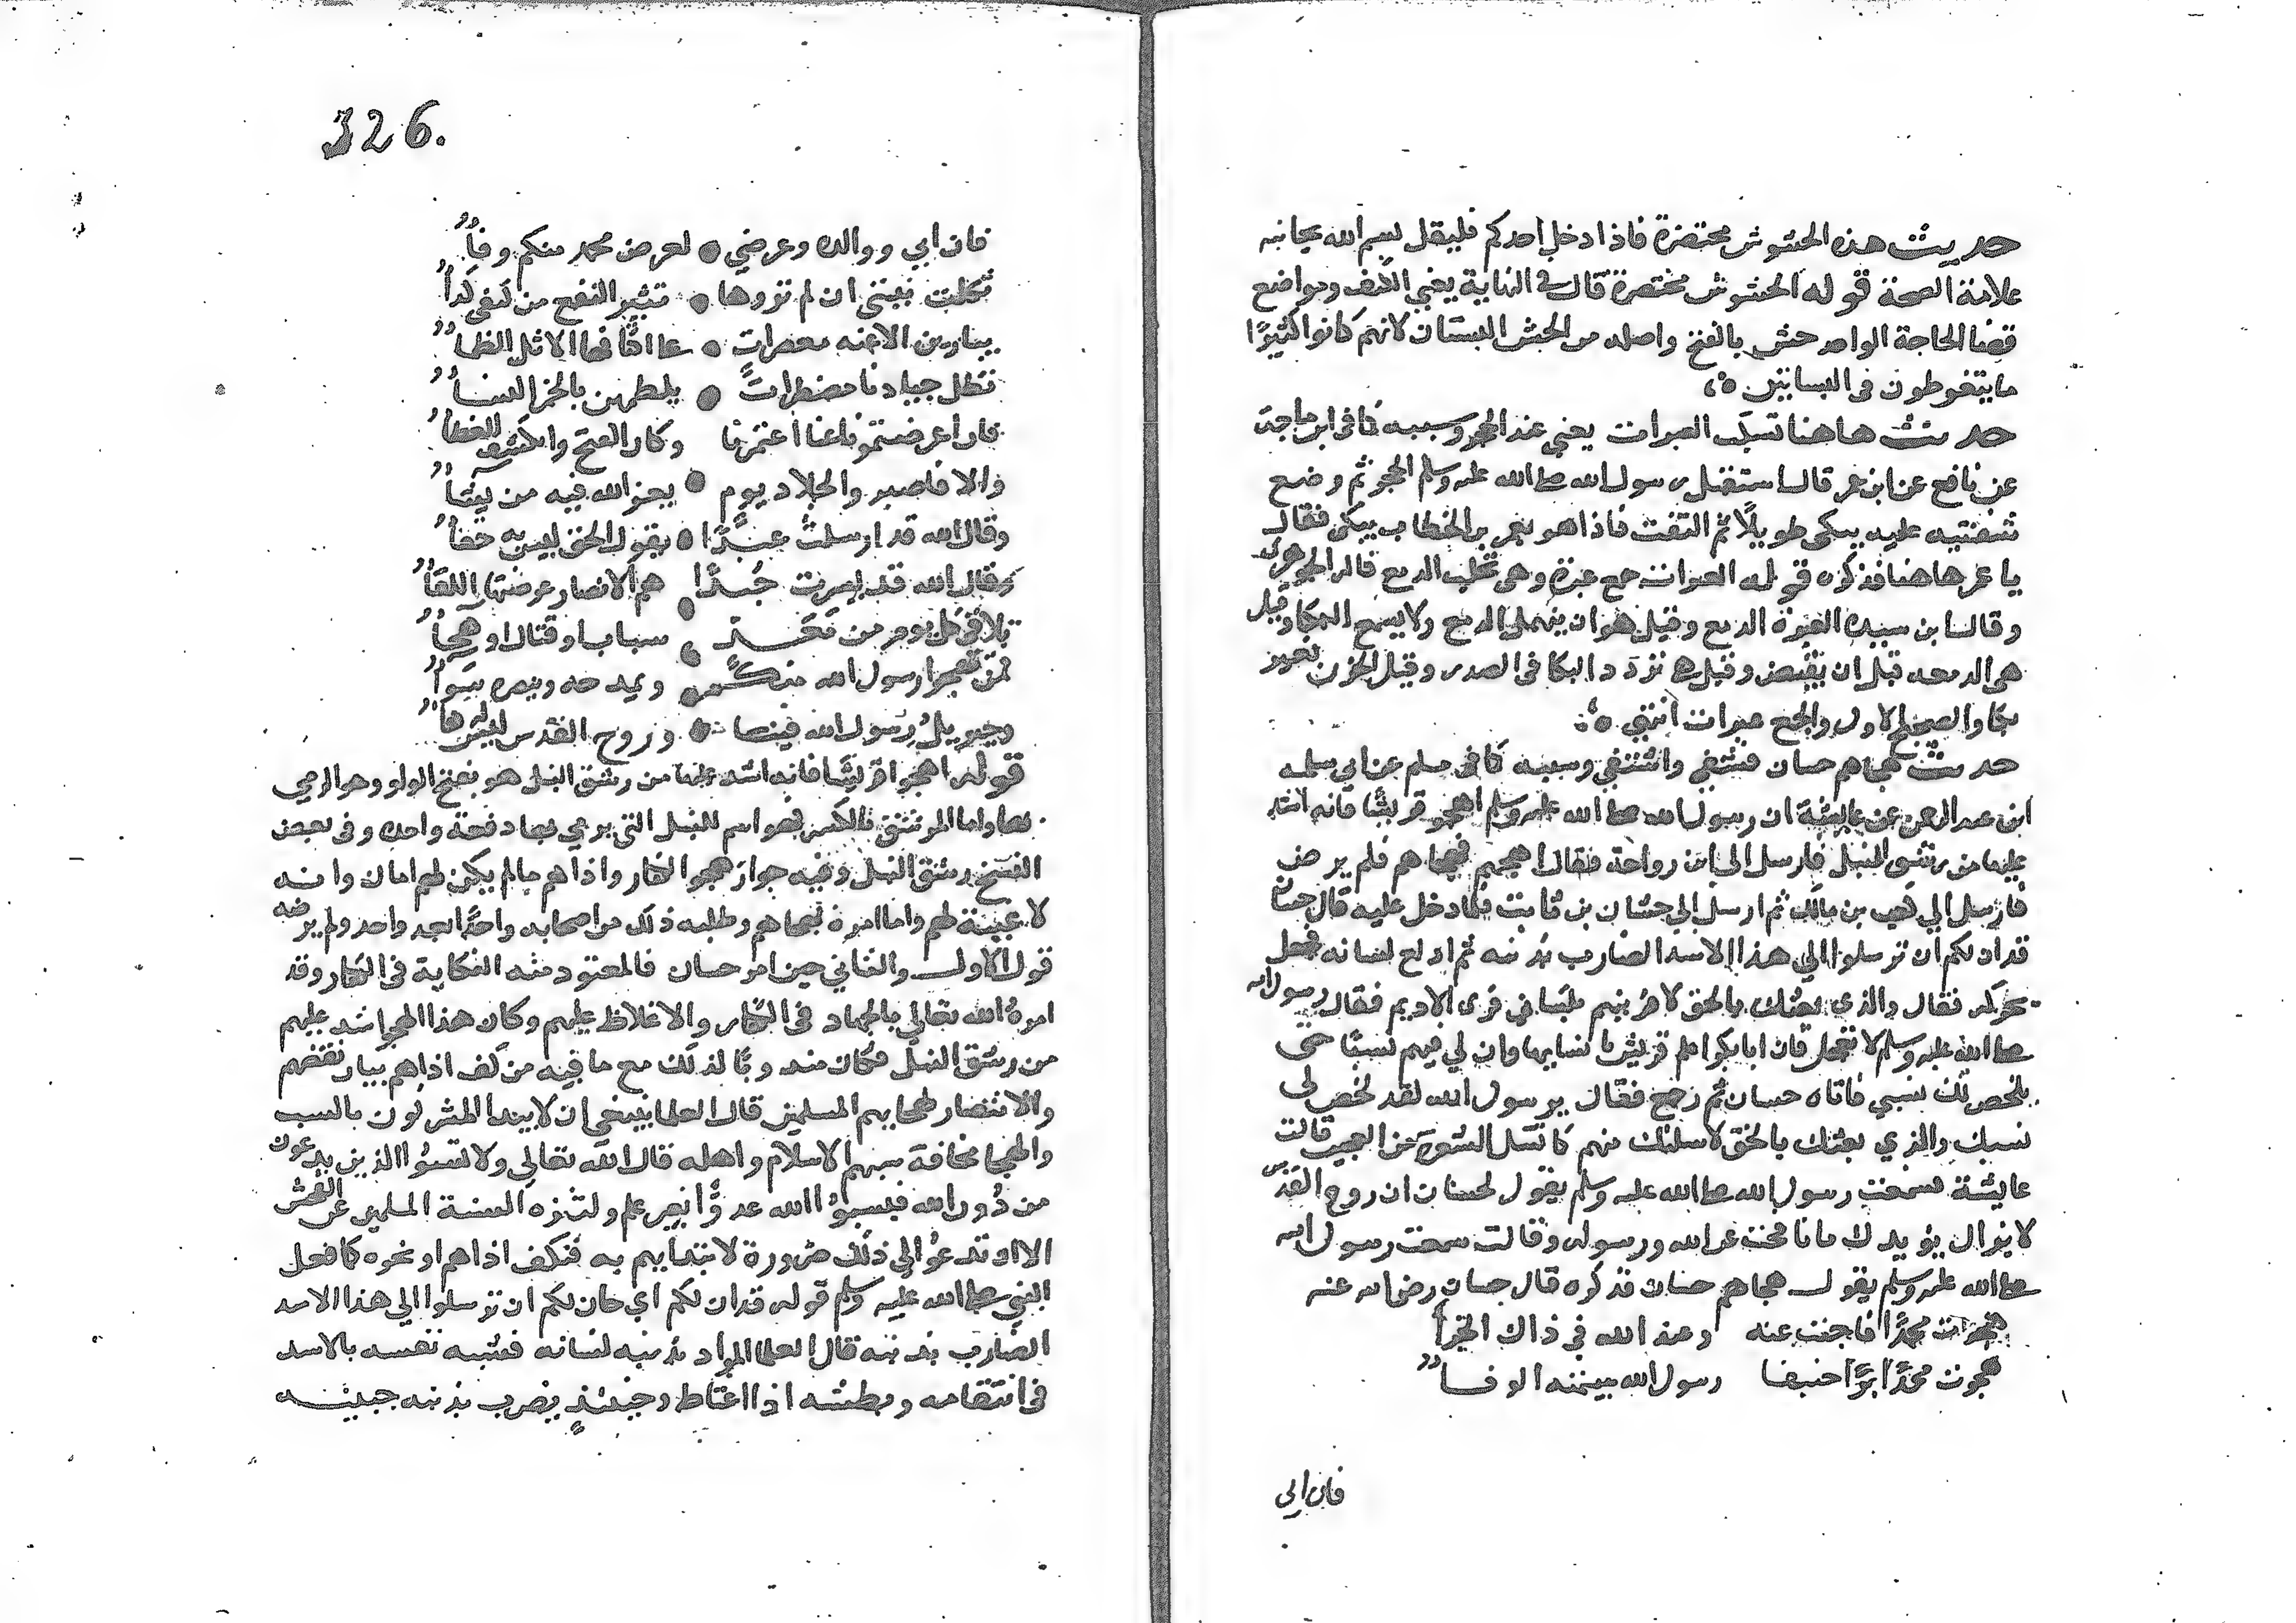 حديث هذه الحشوش محتضرة فاذا دخل احدكم فليقل بسم الله بجانبه
علامة الصحة قوله الحشوش محتضرة قال في النهاية يعني الكنف ومواضع
قضا الحاجة الواحد حش بالفتح واصله من الحش البستان لانهم كانوا كثيرًا
ما يتغوطون في البساتين
حديث هاهنا تسكب العبرات يعني عند الحجر وسببه كما في ابن ماجة
عن نافع عن ابن عمر قال استقبل رسول الله صلى الله عليه وسلم الحجر ثم وضع
شفتيه عليه يبكي طويلًا ثم التفت فاذا هو بعمر بن الخطاب يبكي فقال
يا عمر هاهنا فذكره قوله العبرات جمع عبرة وهي تحلب الدمع قاله الجوهري
وقال ابن سيده العبرة الدمع وقيل هو ان ينهمل الدمع ولا يسمع البكا وقيل
هي الدمعه قبل ان تفيض وقيل هي تردد البكا في الصدر وقيل الحزن بغير
بكا والصحيح الاول والجمع عبرات انتهي
حديث هجاهم حسان فشفي واشتفي وسببه كما في مسلم عن ابي سلمه
ابن عبد الرحمن عن عايشة ان رسول الله صلى الله عليه وسلم اهجو قريشًا فانه اشد
عليها من رشق النبل فارسل الى ابن رواحة فقال اهجهم فهجاهم فلم يرض
فارسل الي كعب بن مالك ثم ارسل الي حسان بن ثابت فلما دخل عليه قال حسان
قد ان لكم ان ترسلوا الي هذا الاسد الضارب بذنبه ثم ادلع لسانه فجعل
يحركه فقال والذي بعثك بالحق لافرينهم بلساني فري الاديم فقال رسول الله
صلى الله عليه وسلم لا تعجل فان ابا بكر اعلم قريش بانسابها وان لي فيهم نسبًا حتى
يلخص لك نسبي فاتاه حسان ثم رجع فقال يرسول الله لقد لخص لي
نسبك والذي بعثك بالحق لاسلنك منهم كما تسل الشعرة من العجين قالت
عايشة فسمعت رسول الله صلى الله عليه وسلم يقول لحسان ان روح القدس
لا يزال يؤيدك ما نافحت عن الله ورسوله وقالت سمعت رسول الله
صلى الله عليه وسلم يقول هجاهم حسان فذكره قال حسان رضي الله عنه
هجوت محمدًا فاجبت عنه وعند الله في ذاك الجزأ
هجوت محمدًا برًّا حنيفا رسول الله شيمته الوفا
فان ابي
326.
فان ابي ووالده وعرضي لعرض محمد منكم وقأ
ثكلت بنيتي ان لم تروها تثير النقع من كنفي كدأ
يبارين الاعنه مصعدات على اكتافها الاسل الظما
تظل جيادنا متمطرات يلطمهن بالخمر النسا
فان اعرضتمو عنا اعتمرنا وكان الفتح وانكشف الغطا
والا فاصبر والجلاد يوم يعز الله فيه من يشا
وقال الله قد ارسلت عبدًا يقول الحق ليس به خفا
وقال الله قد يسرت جندًا هم الانصار عرضتها اللقا
تلاقي كل يوم من معد سباب او قتال او هجا
فمن يهجوا رسول الله منكم ويمدحه وينصره سوا
وجبريل رسول الله فينا وروح القدس ليس له كفا
قوله اهجوا قريشا فانه اشد عليها من رشق النبل هو بفتح الراء وهو الرمي
بها واما الرشق بالكسر فهو اسم للنبل التي يرمي بها دفعة واحده وفي بعض
النسخ رشق النبل وفيه جواز هجو الكفار واذاهم مالم يكن لهم امان وانه
لا غيبة لهم واما امره بهجاهم وطلبه ذلك من اصحابه واحدًا بعد واحد ولم يرضه
قول الاول والثاني حين امر حسان فالمقصود منه النكاية في الكفار وقد
امره الله تعالي بالجهاد في الكفار والاغلاظ عليهم وكان هذا الهجو اشد عليهم
من رشق النبل فكان مندوبًا لذلك مع ما فيه من كف اذاهم بيان نقضهم
والانتصار بهجايهم المسلمين قال العلما ينبغي ان لا يبدا المشركون بالسب
والهجا مخافة سبهم الاسلام واهله قال الله تعالي ولا تسبوا الذين يدعون
من دون الله فيسبوا الله عدوًا بغير علم ولتنزه السنة المسلمين عن الفحش
الا ان تدعوا الي ذلك ضرورة لابتدايهم به فنكف اذاهم او نحوه كما فعل
النبي صلى الله عليه وسلم قوله قد ان لكم اي حان لكم ان ترسلوا الي هذا الاسد
الضارب بذنبه قال العلما المراد بذنبه لسانه فشبه نفسه بالاسد
في انتقامه وبطشه اذا اغتاظ وحينئذٍ يضرب بذنبه جنبيه